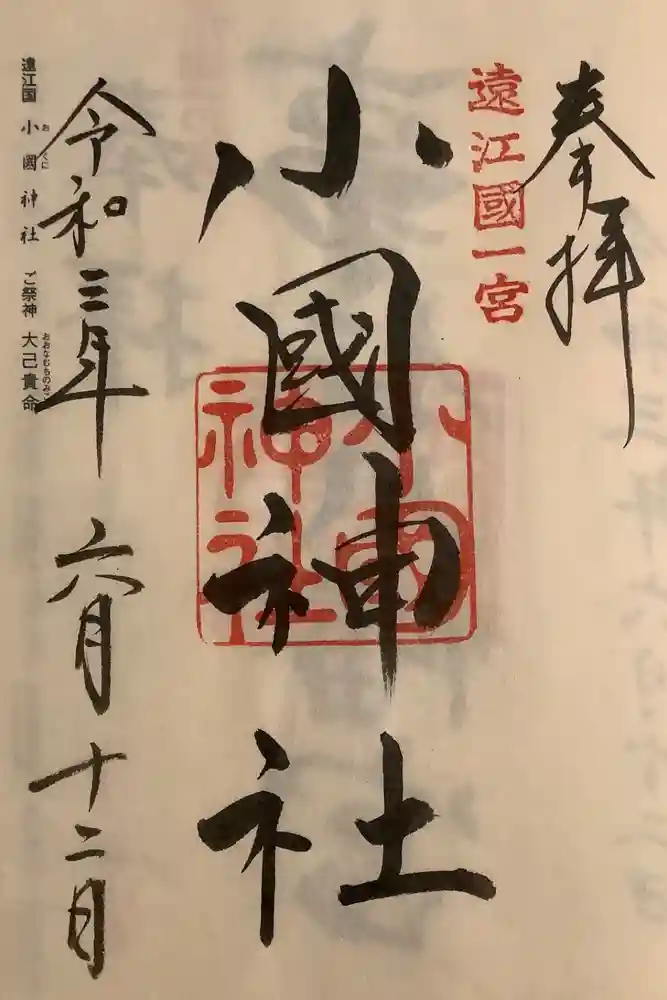 奉拝
遠江國一宮
小國神社
小國神社
令和三年 六月 十二日
遠江国 小國神社 ご祭神 大己貴命
おくに
おおなむちのみこと